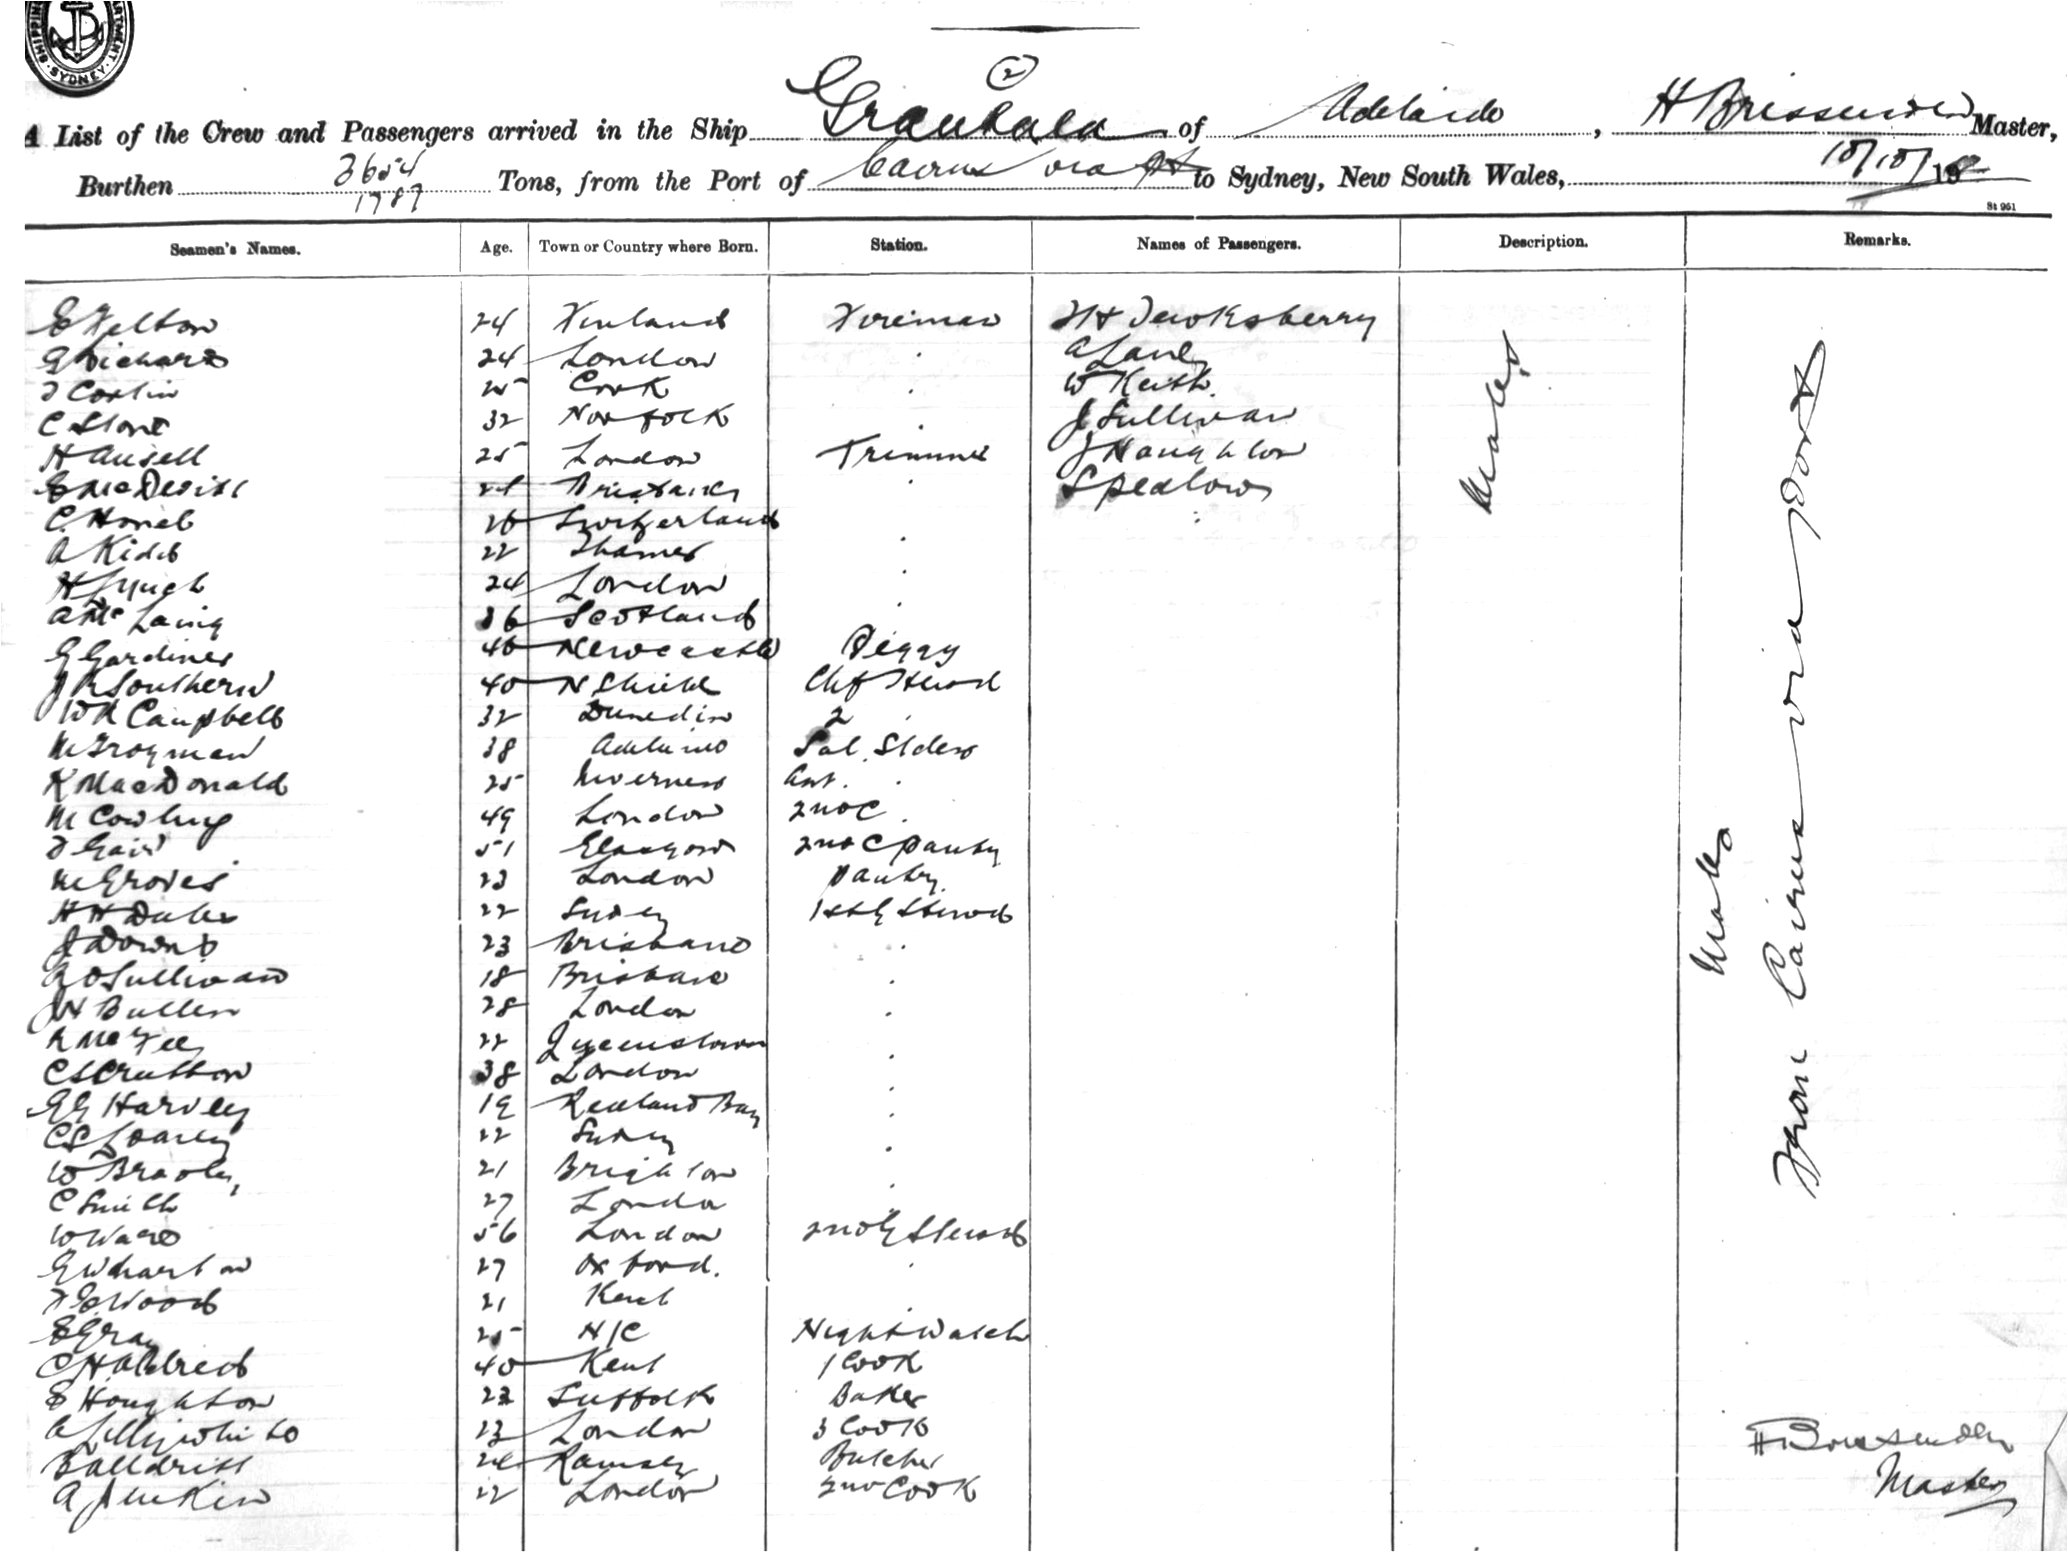 SHIPPING DEPARTMENT SYDNEY
(2)
A List of the Crew and Passengers arrived in the Ship Grantala of Adelaide, H Brissenden Master,
Burthen 3654 1787 Tons, from the Port of Cairns via to Sydney, New South Wales, 10/10/19
St 961
Seamen's Names. Age. Town or Country where Born. Station. Names of Passengers. Description. Remarks.
E Welton 24 Finland Fireman H Tewksberry
G Richards 24 London . A Laney
Costin 25 Cork . W Keith.
C Stone 32 Norfolk . J Sullivan
H Ansell 25 London Trimmer J Naughton
E McDevitt 24 Brisbane . Spedlow
C. 26 Switzerland
A Kidd 22 Thames .
H Lynch 24 London .
A Mc Laing 36 Scotland .
G Gardiner 40 Newcastle Peggy
J R Southern 40 N Shields Chf Steward
W R Campbell 32 Dunedin 2 .
M Troyman 38 Adelaide Sal. Stdess
K MacDonald 25 Inverness Ast. .
M Cowling 49 London 2nd C .
Gair 51 Glasgow 2nd C Pantry
M Groves 23 London Pantry
H H Duke 22 Sydney 1st G Steward
J Downs 23 Brisbane .
R O Sullivan 18 Brisbane .
J H Bullen 28 London .
R McFee 22 Queenstown .
C Scrutton 38 London .
G G Harvey 19 Redland Bay .
C S Loarey 22 Sydney .
W Bradley 21 Brighton .
C Smith 27 London
W Ward 56 London 2nd G Steward
G Wharton 27 Oxford. .
F E Wood 21 Kent .
E Gray 25 N/C Night Watch
C H Aldred 40 Kent 1 Cook
E Houghton 22 Suffolk Baker
A Lillywhite 23 London 3 Cook
B Alldritt 24 Ramsey Butcher
A Junkin 22 London 2nd Cook
Males
Males
From Cairns via Port
H Brissenden
Master